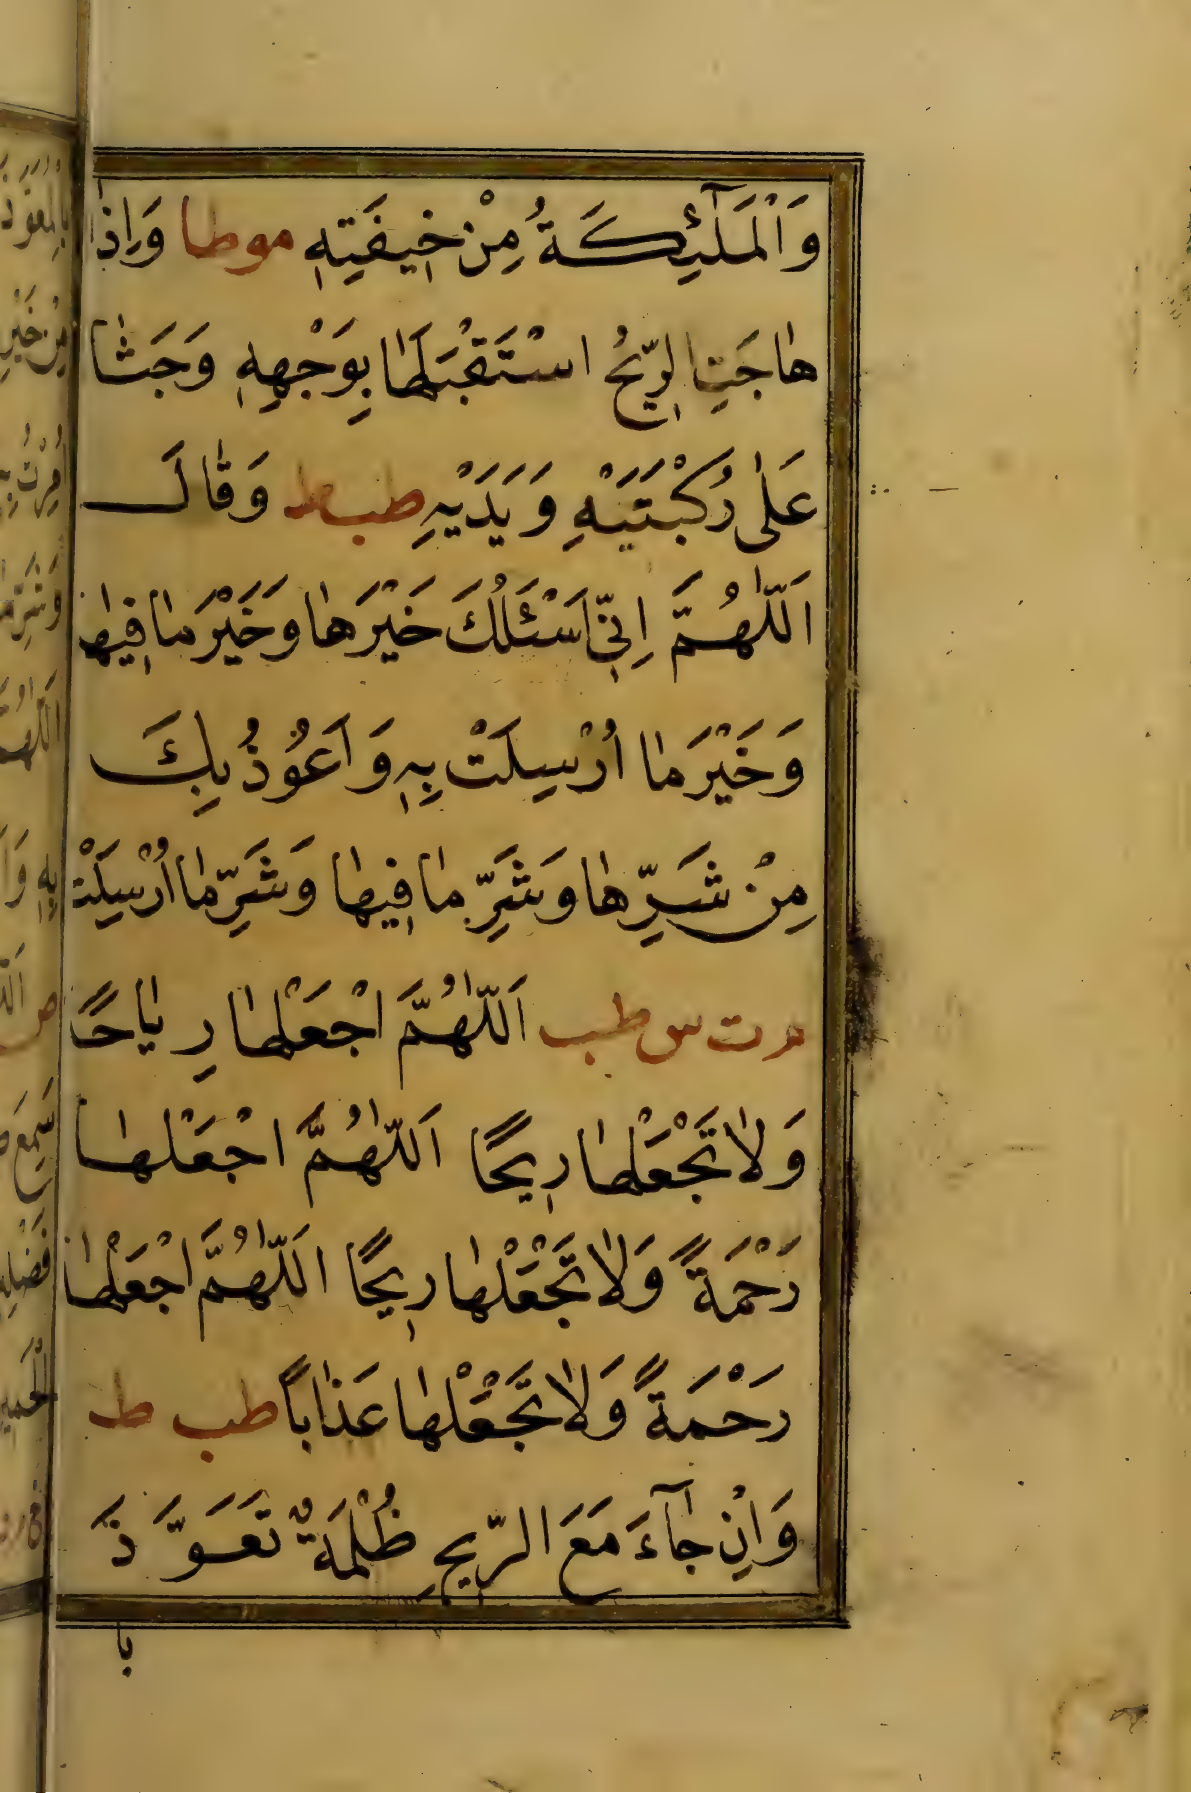 وَالْمَلٰٓئِكَةُ مِنْ خِيفَتِهِ موطا وَاِذَا
هَاجَتِ الرِّيحُ اسْتَقْبَلَهَا بِوَجْهِهِ وَجَثَا
عَلٰى رُكْبَتَيْهِ وَيَدَيْهِ طب ط وَقَالَ
اَللّٰهُمَّ اِنِّي اَسْئَلُكَ خَيْرَهَا وَخَيْرَ مَا فِيهَا
وَخَيْرَ مَا اُرْسِلَتْ بِهِ وَاَعُوذُ بِكَ
مِنْ شَرِّهَا وَشَرِّ مَا فِيهَا وَشَرِّ مَا اُرْسِلَتْ بِهِ
م ت س طب اَللّٰهُمَّ اجْعَلْهَا رِيَاحًا
وَلَا تَجْعَلْهَا رِيحًا اَللّٰهُمَّ اجْعَلْهَا
رَحْمَةً وَلَا تَجْعَلْهَا رِيحًا اللّٰهُمَّ اجْعَلْهَا
رَحْمَةً وَلَا تَجْعَلْهَا عَذَابًا طب ط
وَاِنْ جَآءَ مَعَ الرِّيحِ ظُلْمَةٌ تَعَوَّذَ
با